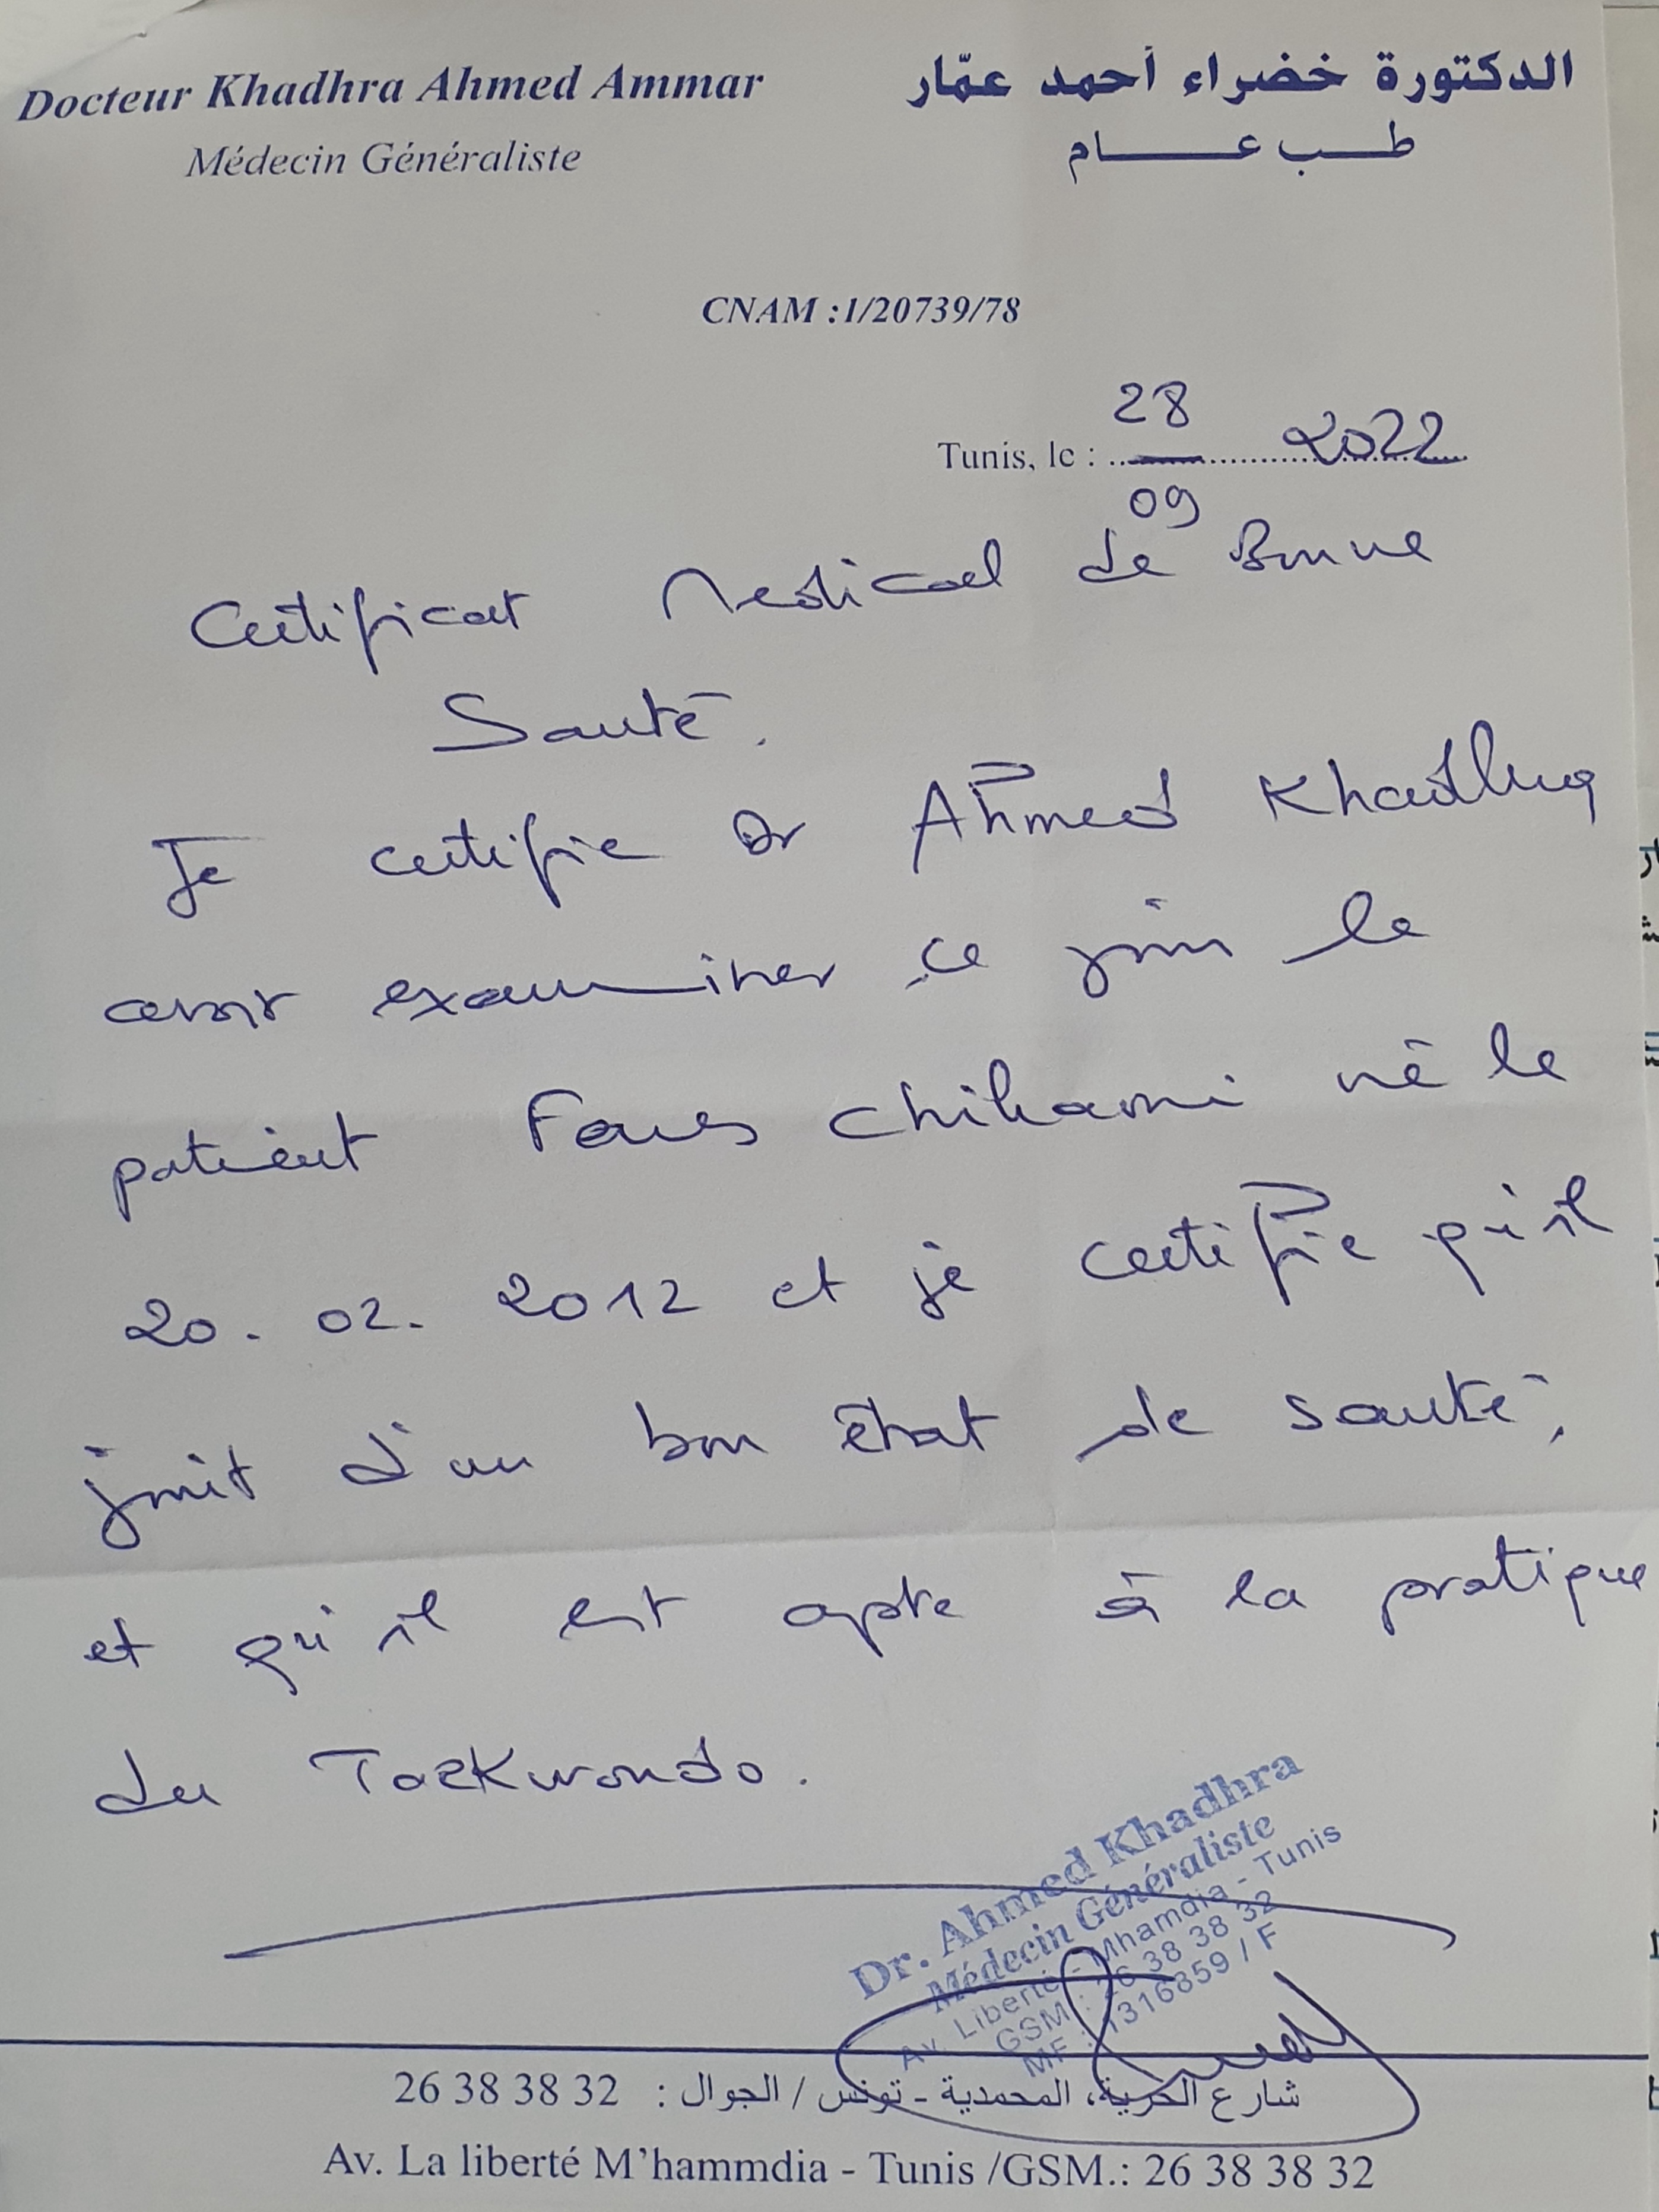 Docteur Khadhra Ahmed Ammar
الدكتورة خضراء أحمد عمّار
Médecin Généraliste
طب عام
CNAM :1/20739/78
Tunis, le : 28/09 2022
Certificat Medical de Bonne
Santé.
Je certifie Dr Ahmed Khadhra
avoir examiner ce jour le
patient Fares Chihaoui né le
20. 02. 2012 et je certifie qu'il
jouit d'un bon état de santé,
et qu'il est apte à la pratique
du Taekwondo.
Dr. Ahmed Khadhra
Médecin Généraliste
Av. Liberté - Mhamdia - Tunis
GSM : 26 38 38 32
MF : 1316859 / F
شارع الحرية، المحمدية - تونس / الجوال : 26 38 38 32
Av. La liberté M'hammdia - Tunis /GSM.: 26 38 38 32